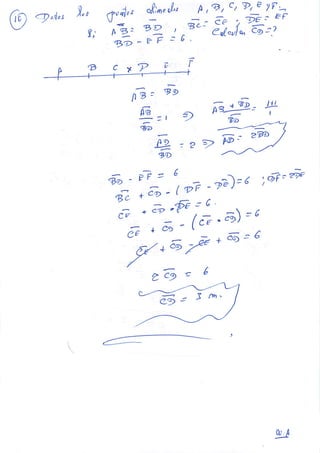 16 Dados los puntos A, B, C, D, E y F.
Si AB = BD , BC = CE ; DE = EF
BD - EF = 6. Calcular CD = ?
A B C x D E F
AB = BD
AB/BD = 1 ⇒ AB + BD/BD = 1+1/1
AD/BD = 2 ⇒ AD = 2BD
BD - EF = 6
BC + CD - (DF - DE) = 6 ; DF = 2DE
CE + CD - DE = 6.
CE + CD - (CE - CD) = 6
CE + CD - CE + CD = 6
2 CD = 6
CD = 3 m.